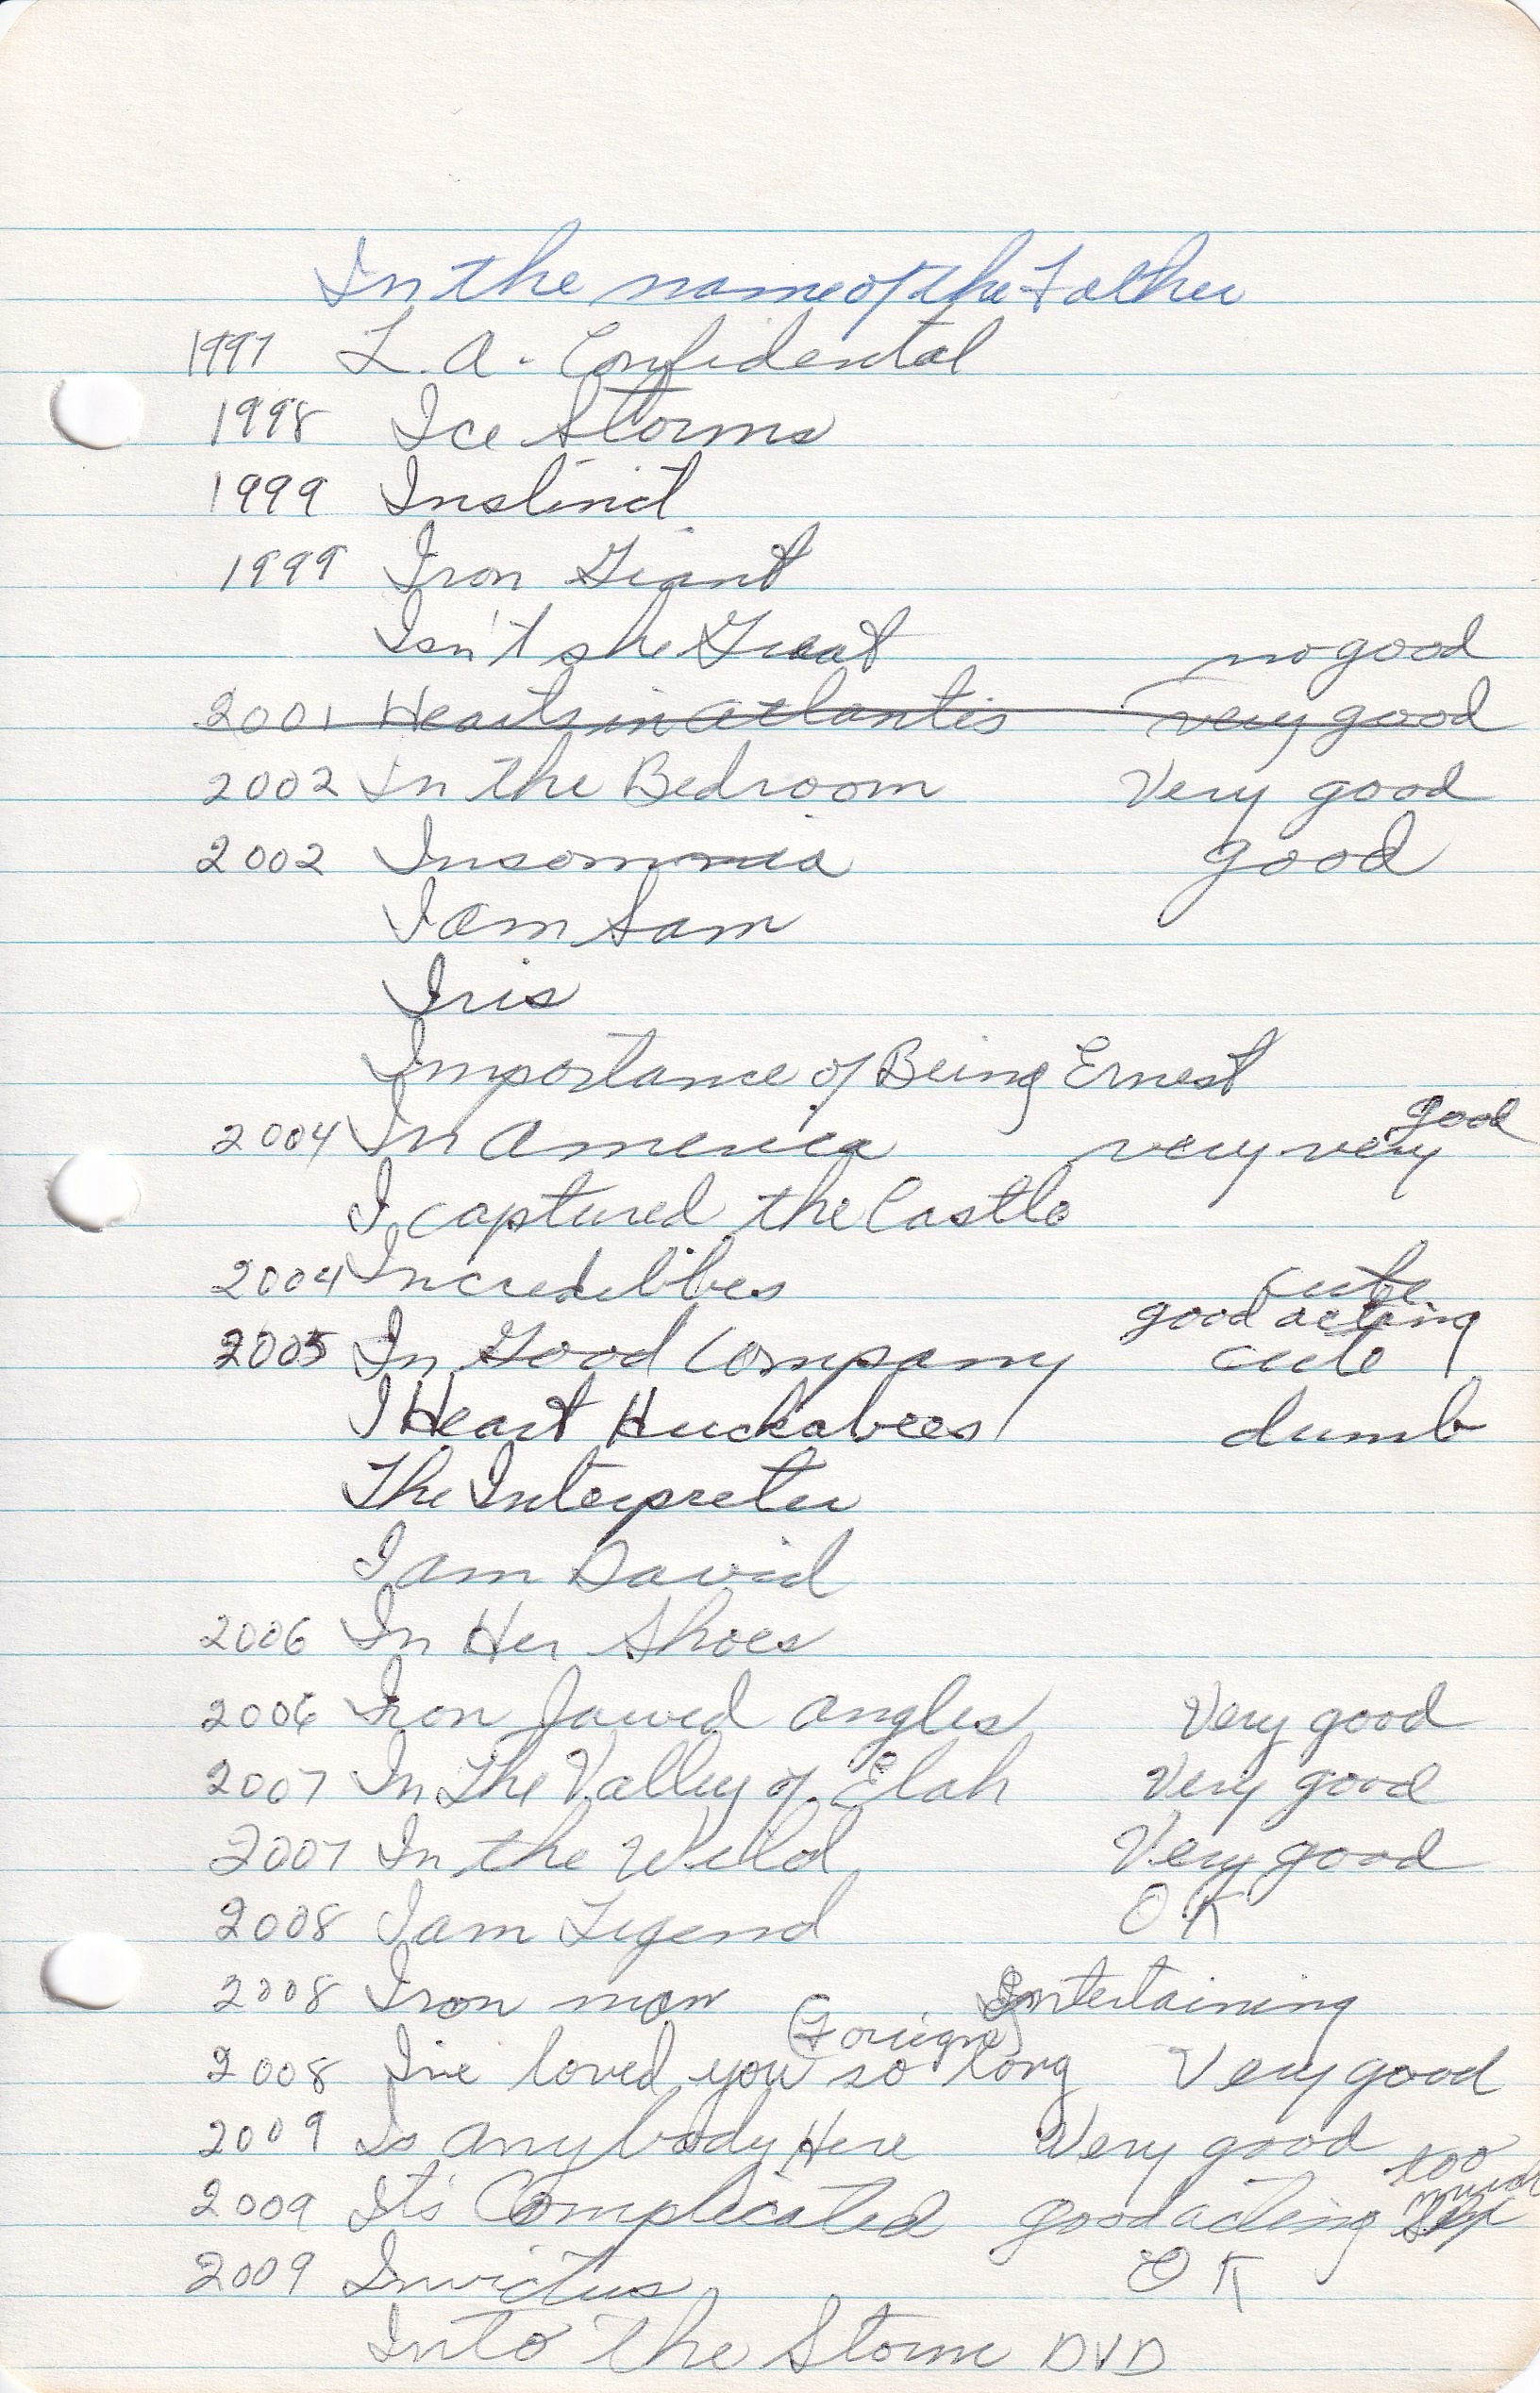 In the name of the Father
1997 L.A. Confidental
1998 Ice Storms
1999 Instinct
1999 Iron Giant
Isn't she Great no good
2001 Hearts in atlantis very good
2002 In the Bedroom Very good
2002 Insomnia good
I am Sam
Iris
Importance of Being Ernest
2004 In America very very good
I captured the Castle
2004 Incredibbes cute
2005 In Good Company good acting cute
I Heart Huckabees dumb
The Interpreter
I am David
2006 In Her Shoes
2006 Iron Jawed Angles Very good
2007 In The Valley of Elah Very good
2007 In the Wild Very good
2008 I am Legend OK
2008 Iron man Entertaining
2008 I've loved you so long (Foreign) Very good
2009 Is Anybody Here Very good
2009 It's Complicated good acting too much sex
2009 Invictus OK
Into The Storm DVD